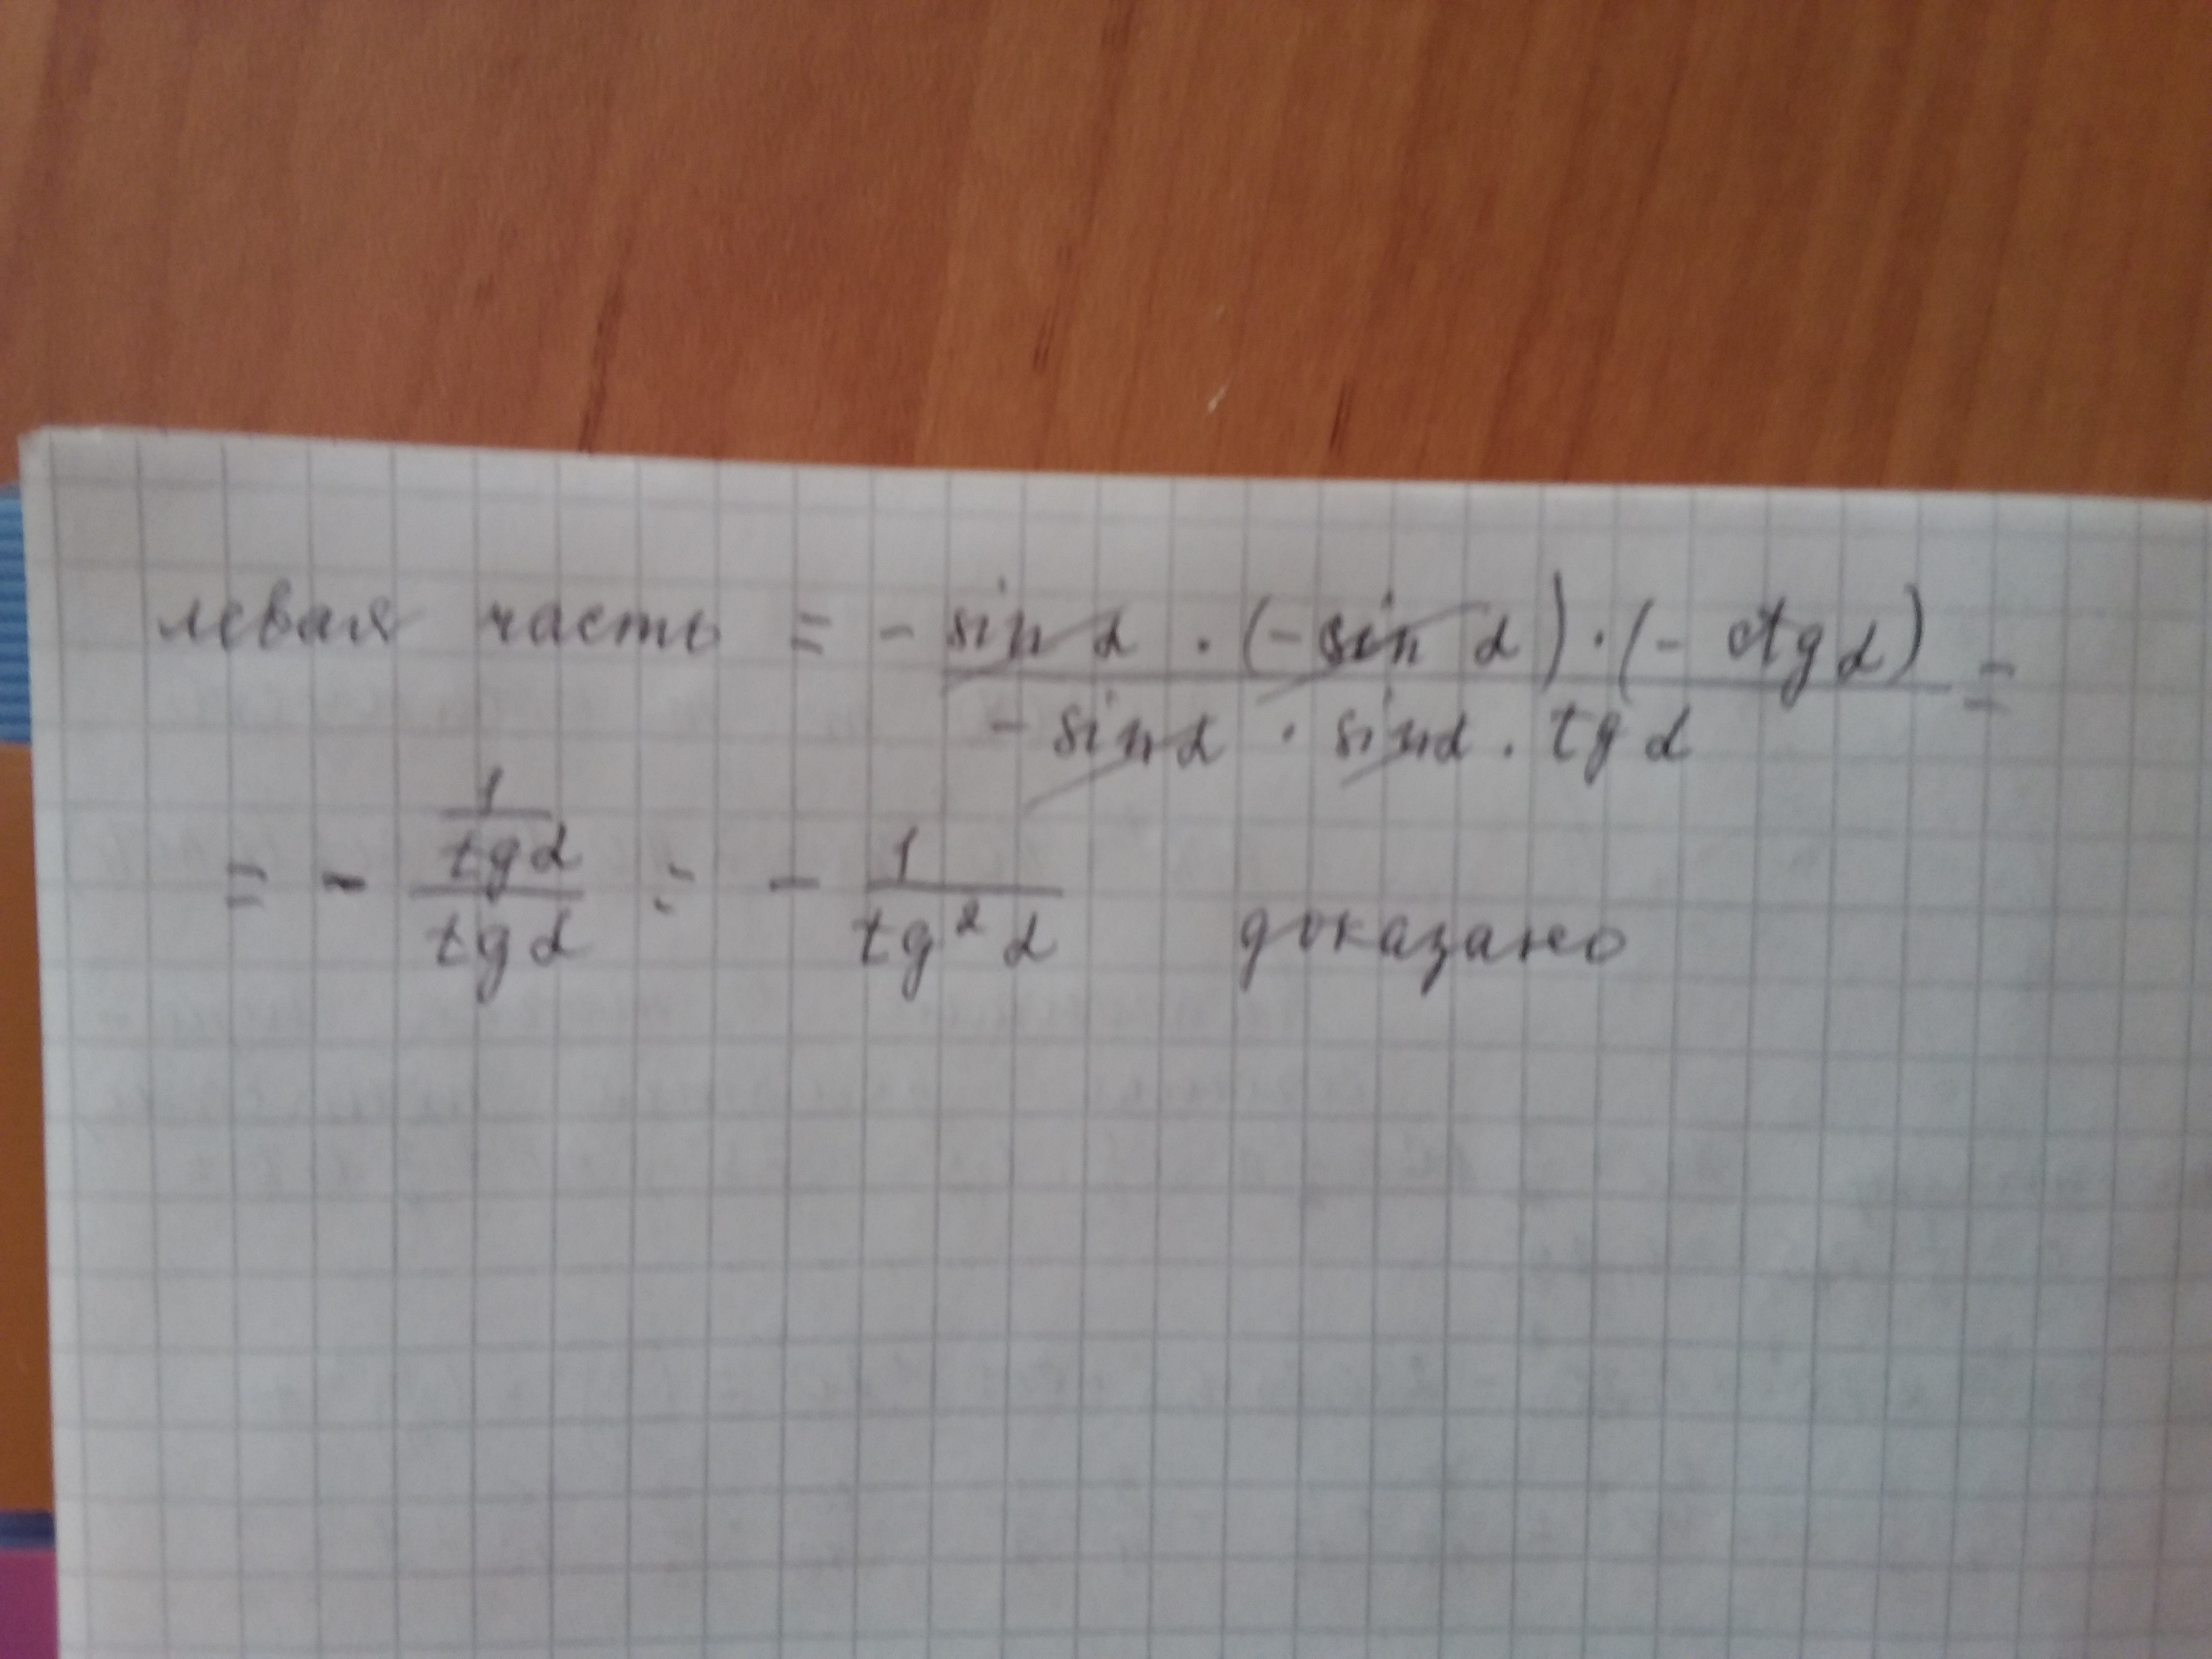 левая часть = - sin α · (- sin α) · (- ctg α) / - sin α · sin α · tg α =
= - 1/tg α / tg α = - 1 / tg² α доказано